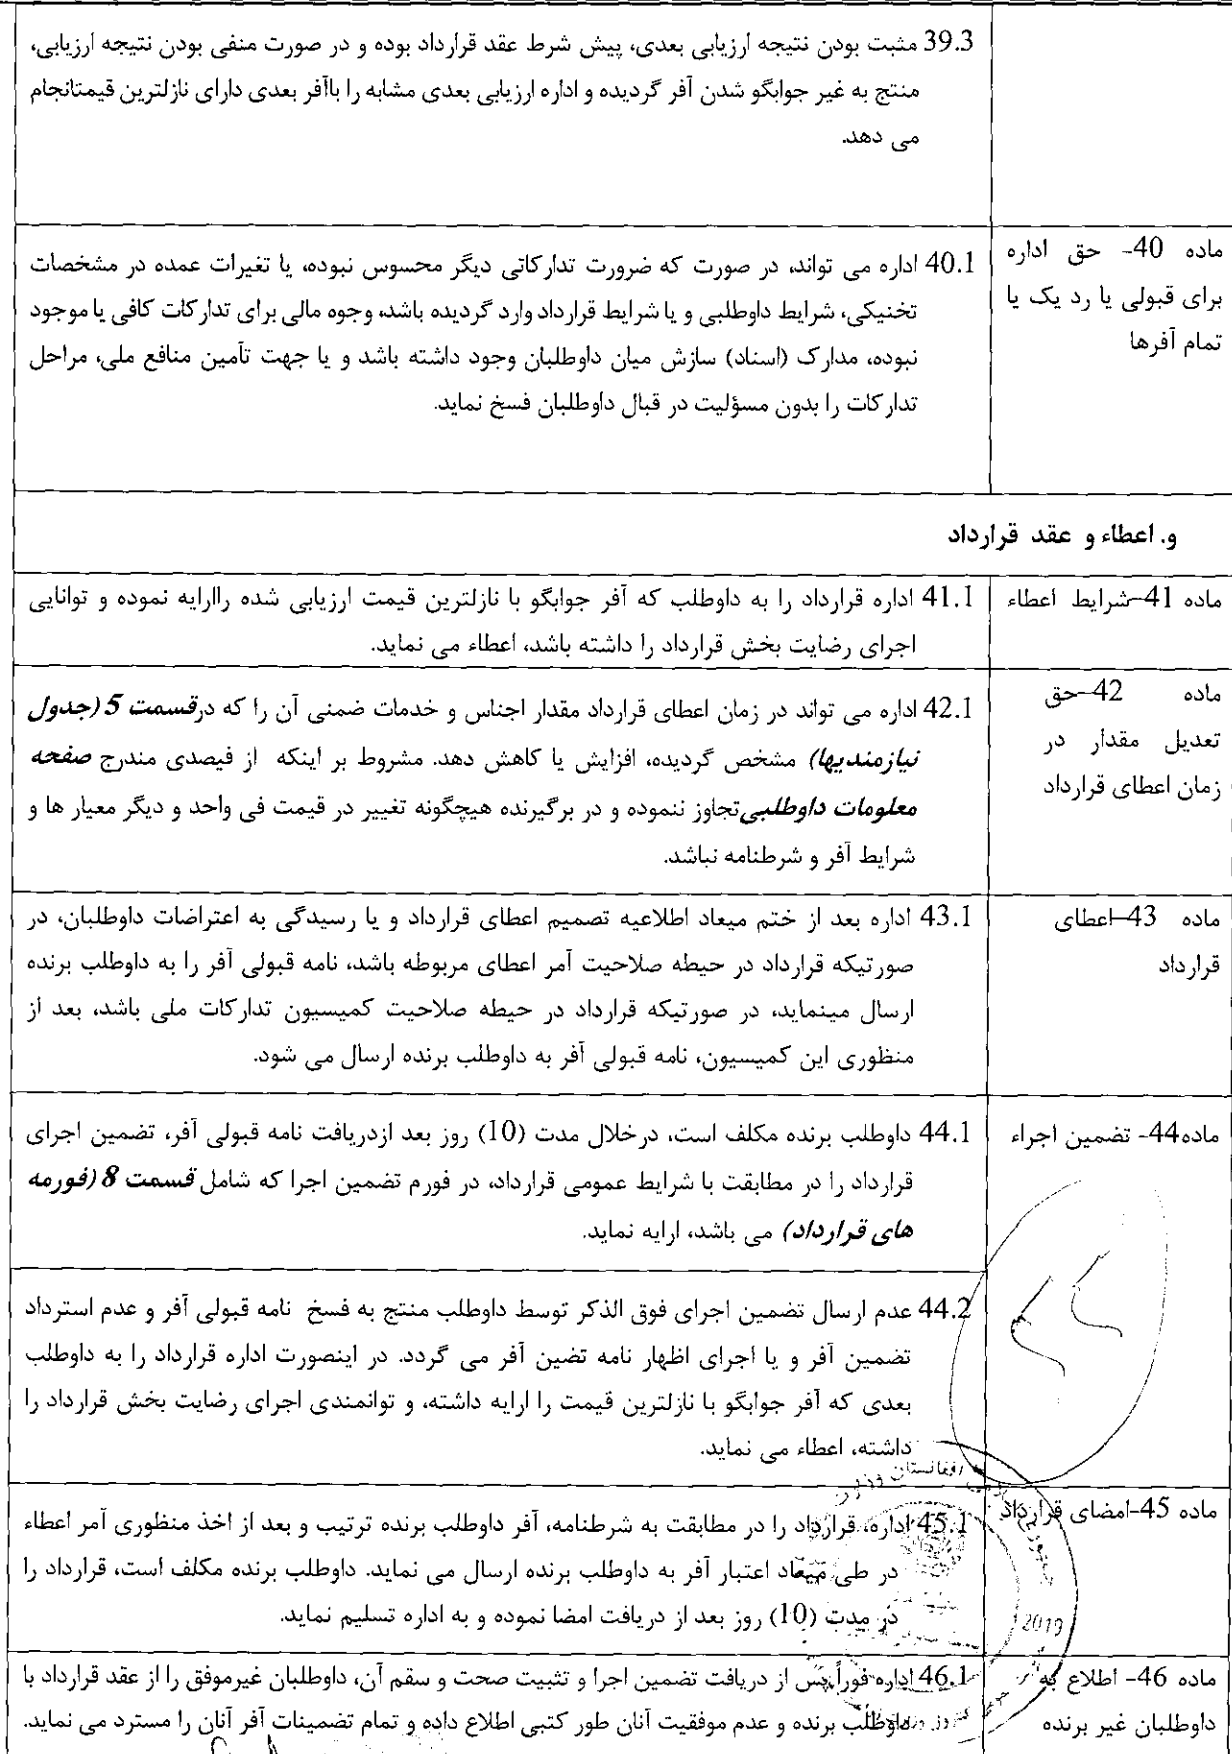 39.3 مثبت بودن نتیجه ارزیابی بعدی، پیش شرط عقد قرارداد بوده و در صورت منفی بودن نتیجه ارزیابی،
منتج به غیر جوابگو شدن آفر گردیده و اداره ارزیابی بعدی مشابه را باآفر بعدی دارای نازلترین قیمتانجام
می دهد.
ماده 40- حق اداره
برای قبولی یا رد یک یا
تمام آفرها
40.1 اداره می تواند، در صورت که ضرورت تدارکاتی دیگر محسوس نبوده، یا تغیرات عمده در مشخصات
تخنیکی، شرایط داوطلبی و یا شرایط قرارداد وارد گردیده باشد، وجوه مالی برای تدارکات کافی یا موجود
نبوده، مدارک (اسناد) سازش میان داوطلبان وجود داشته باشد و یا جهت تآمین منافع ملی، مراحل
تدارکات را بدون مسؤلیت در قبال داوطلبان فسخ نماید.
و. اعطاء و عقد قرارداد
ماده 41-شرایط اعطاء
41.1 اداره قرارداد را به داوطلب که آفر جوابگو با نازلترین قیمت ارزیابی شده راارایه نموده و توانایی
اجرای رضایت بخش قرارداد را داشته باشد، اعطاء می نماید.
ماده 42-حق
تعدیل مقدار در
زمان اعطای قرارداد
42.1 اداره می تواند در زمان اعطای قرارداد مقدار اجناس و خدمات ضمنی آن را که درقسمت 5 (جدول
نیازمندیها) مشخص گردیده، افزایش یا کاهش دهد. مشروط بر اینکه از فیصدی مندرج صفحه
معلومات داوطلبی تجاوز ننموده و در برگیرنده هیچگونه تغییر در قیمت فی واحد و دیگر معیار ها و
شرایط آفر و شرطنامه نباشد.
ماده 43-اعطای
قرارداد
43.1 اداره بعد از ختم میعاد اطلاعیه تصمیم اعطای قرارداد و یا رسیدگی به اعتراضات داوطلبان، در
صورتیکه قرارداد در حیطه صلاحیت آمر اعطای مربوطه باشد، نامه قبولی آفر را به داوطلب برنده
ارسال مینماید، در صورتیکه قرارداد در حیطه صلاحیت کمیسیون تدارکات ملی باشد، بعد از
منظوری این کمیسیون، نامه قبولی آفر به داوطلب برنده ارسال می شود.
ماده44- تضمین اجراء
44.1 داوطلب برنده مکلف است، درخلال مدت (10) روز بعد ازدریافت نامه قبولی آفر، تضمین اجرای
قرارداد را در مطابقت با شرایط عمومی قرارداد، در فورم تضمین اجرا که شامل قسمت 8 (فورمه
های قرارداد) می باشد، ارایه نماید.
44.2 عدم ارسال تضمین اجرای فوق الذکر توسط داوطلب منتج به فسخ نامه قبولی آفر و عدم استرداد
تضمین آفر و یا اجرای اظهار نامه تضین آفر می گردد. در اینصورت اداره قرارداد را به داوطلب
بعدی که آفر جوابگو با نازلترین قیمت را ارایه داشته، و توانمندی اجرای رضایت بخش قرارداد را
داشته، اعطاء می نماید.
ماده 45-امضای قرارداد
45.1 اداره، قرارداد را در مطابقت به شرطنامه، آفر داوطلب برنده ترتیب و بعد از اخذ منظوری آمر اعطاء
در طی میعاد اعتبار آفر به داوطلب برنده ارسال می نماید. داوطلب برنده مکلف است، قرارداد را
در مدت (10) روز بعد از دریافت امضا نموده و به اداره تسلیم نماید.
افغانستان
2019
ماده 46- اطلاع به
داوطلبان غیر برنده
46.1 اداره فوراً پس از دریافت تضمین اجرا و تثبیت صحت و سقم آن، داوطلبان غیرموفق را از عقد قرارداد با
داوطلب برنده و عدم موفقیت آنان طور کتبی اطلاع داده و تمام تضمینات آفر آنان را مسترد می نماید.